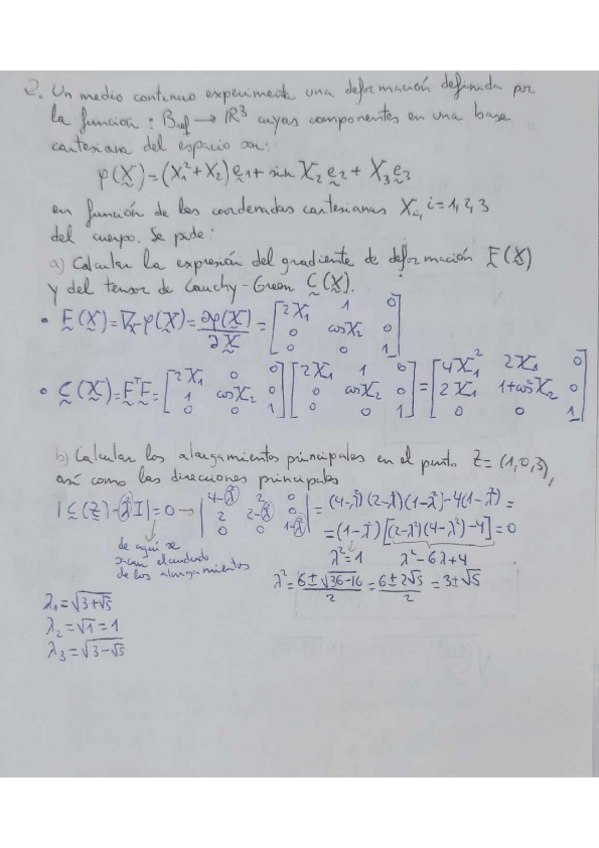 2. Un medio continuo experimenta una deformación definida por
la función: B_ref → ℝ³ cuyas componentes en una base
cartesiana del espacio son:
φ(X) = (X₁² + X₂) e₁ + sin X₂ e₂ + X₃ e₃
en función de las coordenadas cartesianas Xᵢ, i = 1, 2, 3
del cuerpo. Se pide:
a) Calcular la expresión del gradiente de deformación F(X)
y del tensor de Cauchy-Green C(X).
• F(X) = ∇φ(X) = ∂φ(X)/∂X = [2X₁ 1 0; 0 cosX₂ 0; 0 0 1]
• C(X) = FᵀF = [2X₁ 0 0; 1 cosX₂ 0; 0 0 1] [2X₁ 1 0; 0 cosX₂ 0; 0 0 1] = [4X₁² 2X₁ 0; 2X₁ 1+cos²X₂ 0; 0 0 1]
b) Calcular los alargamientos principales en el punto Z = (1,0,3),
así como las direcciones principales
|C(Z) - λ²I| = 0 → |4-λ² 2 0; 2 2-λ² 0; 0 0 1-λ²| = (4-λ²)(2-λ²)(1-λ²) - 4(1-λ²) =
= (1-λ²)[(2-λ²)(4-λ²) - 4] = 0
de aquí se
sacan el cuadrado
de los alargamientos
λ² = 1 λ² - 6λ + 4
λ² = (6 ± √(36-16))/2 = (6 ± 2√5)/2 = 3 ± √5
λ₁ = √(3+√5)
λ₂ = √1 = 1
λ₃ = √(3-√5)